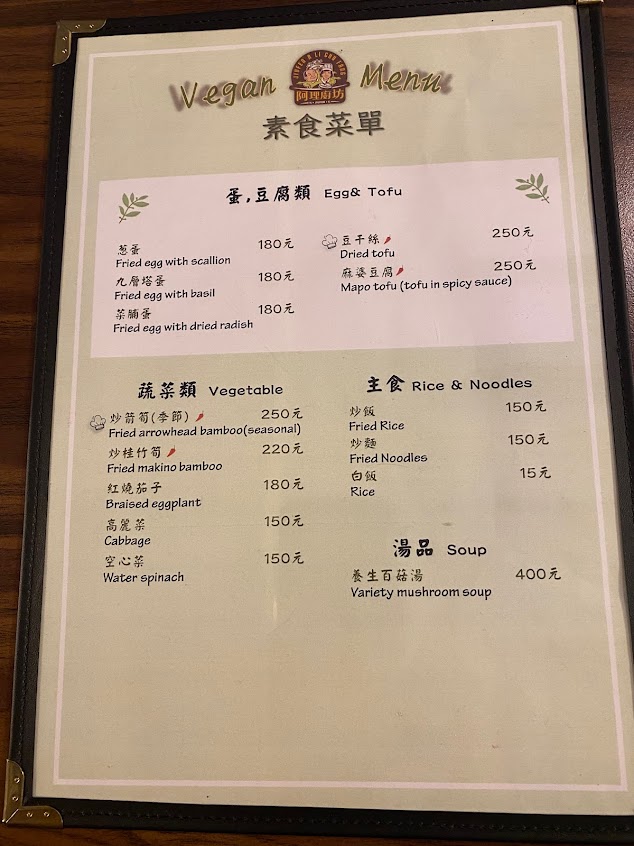 Vegan Menu
阿理廚坊
素食菜單
蛋,豆腐類 Egg& Tofu
葱蛋 180元
Fried egg with scallion
九層塔蛋 180元
Fried egg with basil
菜脯蛋 180元
Fried egg with dried radish
豆干絲 250元
Dried tofu
麻婆豆腐 250元
Mapo tofu (tofu in spicy sauce)
蔬菜類 Vegetable
炒箭筍(季節) 250元
Fried arrowhead bamboo(seasonal)
炒桂竹筍 220元
Fried makino bamboo
紅燒茄子 180元
Braised eggplant
高麗菜 150元
Cabbage
空心菜 150元
Water spinach
主食 Rice & Noodles
炒飯 150元
Fried Rice
炒麵 150元
Fried Noodles
白飯 15元
Rice
湯品 Soup
養生百菇湯 400元
Variety mushroom soup